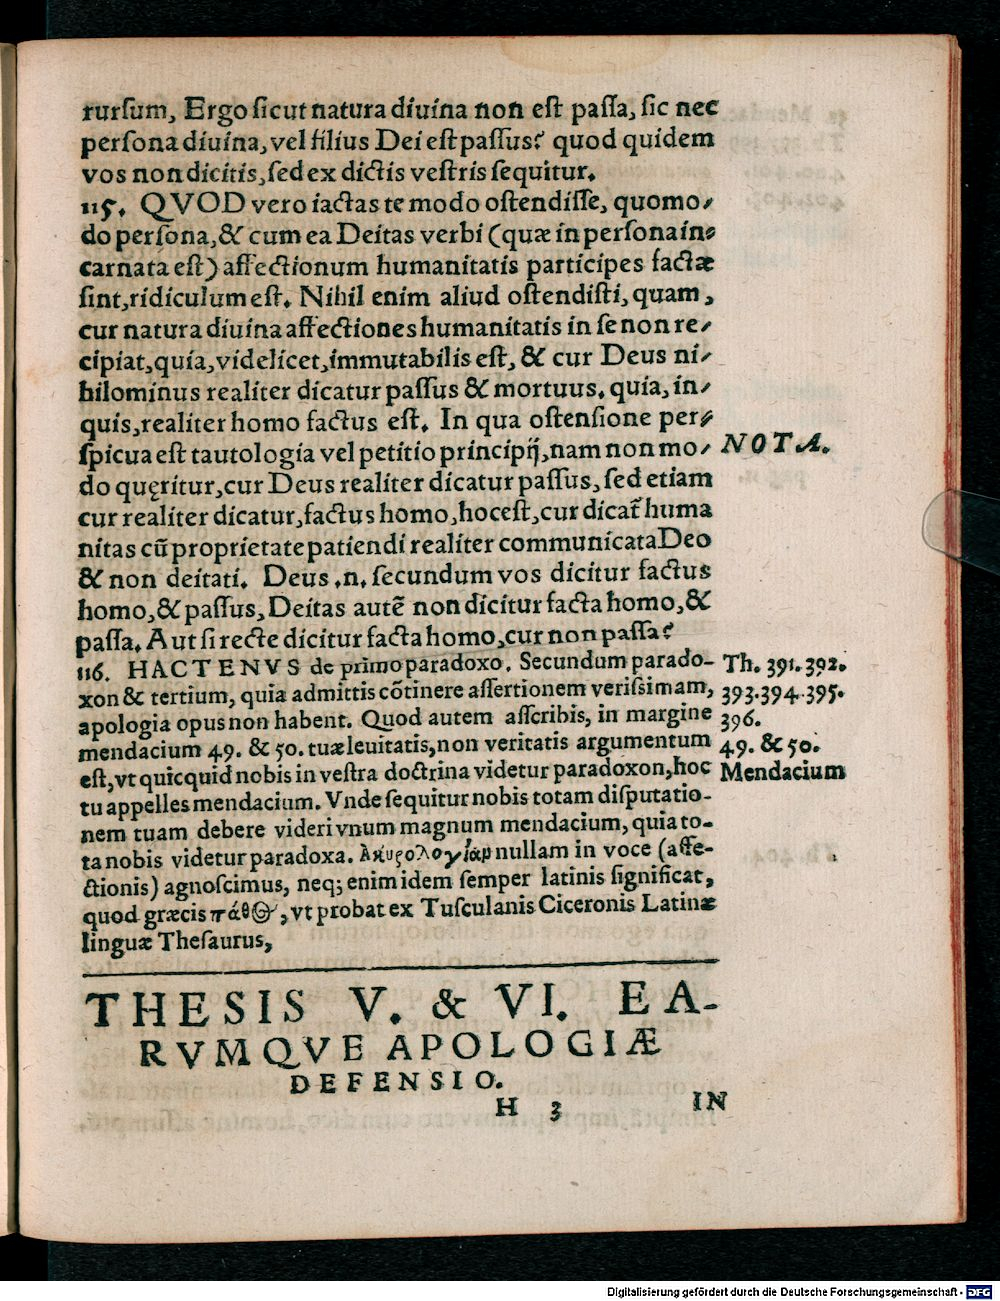 rurſum, Ergo ſicut natura diuina non eſt paſſa, ſic nec
perſona diuina, vel filius Dei eſt paſſus? quod quidem
vos non dicitis, ſed ex dictis veſtris ſequitur.
115. QVOD vero iactas te modo oſtendiſſe, quomo-
do perſona, & cum ea Deitas verbi (quæ in perſona in-
carnata eſt) affectionum humanitatis participes factæ
ſint, ridiculum eſt. Nihil enim aliud oſtendiſti, quam,
cur natura diuina affectiones humanitatis in ſe non re-
cipiat, quia, videlicet, immutabilis eſt, & cur Deus ni-
hilominus realiter dicatur paſſus & mortuus. quia, in-
quis, realiter homo factus eſt. In qua oſtenſione per-
ſpicua eſt tautologia vel petitio principij, nam non mo-
NOTA.
do quęritur, cur Deus realiter dicatur paſſus, ſed etiam
cur realiter dicatur, factus homo, hoc eſt, cur dicat̃ huma
nitas cũ proprietate patiendi realiter communicata Deo
& non deitati. Deus .n. ſecundum vos dicitur factus
homo, & paſſus, Deitas autẽ non dicitur facta homo, &
paſſa. Aut ſi recte dicitur facta homo, cur non paſſa?
116. HACTENVS de primo paradoxo. Secundum parado-
Th. 391. 392.
xon & tertium, quia admittis cõtinere aſſertionem veriſsimam,
393. 394. 395.
apologia opus non habent. Quod autem aſſcribis, in margine
396.
mendacium 49. & 50. tuæ leuitatis, non veritatis argumentum
49. & 50.
eſt, vt quicquid nobis in veſtra doctrina videtur paradoxon, hoc
Mendacium
tu appelles mendacium. Vnde ſequitur nobis totam diſputatio-
nem tuam debere videri vnum magnum mendacium, quia to-
ta nobis videtur paradoxa. Ἀκυρολογίαμ nullam in voce (affe-
ctionis) agnoſcimus, neq; enim idem ſemper latinis ſignificat,
quod græcis πάθος, vt probat ex Tuſculanis Ciceronis Latinæ
linguæ Theſaurus,
THESIS V. & VI. EA-
RVMQVE APOLOGIÆ
DEFENSIO.
H 3 IN
Digitalisierung gefördert durch die Deutsche Forschungsgemeinschaft - DFG